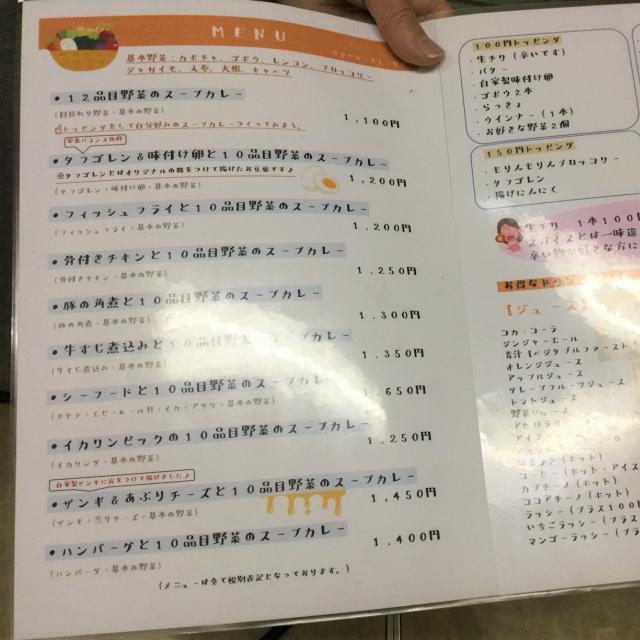 MENU
基本野菜：カボチャ、ゴボウ、レンコン、ブロッコリー
ジャガイモ、人参、大根、キャベツ
・12品目野菜のスープカレー
(日替わり野菜・基本の野菜)
1,100円
トッピングをして自分好みのスープカレーつくってみよう。
栄養バランス抜群
・タフゴレン&味付け卵と10品目野菜のスープカレー
※タフゴレンとはオリジナルの粉をつけて揚げたお豆腐です♪
(タフゴレン・味付け卵・基本の野菜)
1,200円
・フィッシュフライと10品目野菜のスープカレー
(フィッシュフライ・基本の野菜)
1,200円
・骨付きチキンと10品目野菜のスープカレー
(骨付きチキン・基本の野菜)
1,250円
・豚の角煮と10品目野菜のスープカレー
(豚の角煮・基本の野菜)
1,300円
・牛すじ煮込みと10品目野菜のスープカレー
(牛すじ煮込み・基本の野菜)
1,350円
・シーフードと10品目野菜のスープカレー
(ホタテ・エビ・ムール貝・イカ・アサリ・基本の野菜)
,650円
・イカリンピックの10品目野菜のスープカレー
(イカリング・基本の野菜)
1,250円
自家製ザンギに衣をつけて揚げました♪
・ザンギ&あぶりチーズと10品目野菜のスープカレー
(ザンギ・炙りチーズ・基本の野菜)
1,450円
・ハンバーグと10品目野菜のスープカレー
(ハンバーグ・基本の野菜)
1,400円
(メニューは全て税別表記となっております。)
100円トッピング
・生チリ(辛いです)
・バター
・自家製味付け卵
・ゴボウ2本
・らっきょ
・ウインナー(1本)
・お好きな野菜2個
150円トッピング
・もりんもりんブロッコリー
・タフゴレン
・揚げにんにく
生チリ 1本100円
スパイスとは一味違
辛い物が好きな方に
お得なドリン
【ジュース】
コカ・コーラ
ジンジャーエール
青汁【ベジタブルファースト
オレンジジュース
アップルジュース
グレープフルーツジュース
トマトジュース
野菜ジュース
(ホット)
(ホット・アイス
カプチーノ(ホット)
ココアチーノ(ホット)
ラッシー(プラス100
いちごラッシー(プラス
マンゴーラッシー(プラ